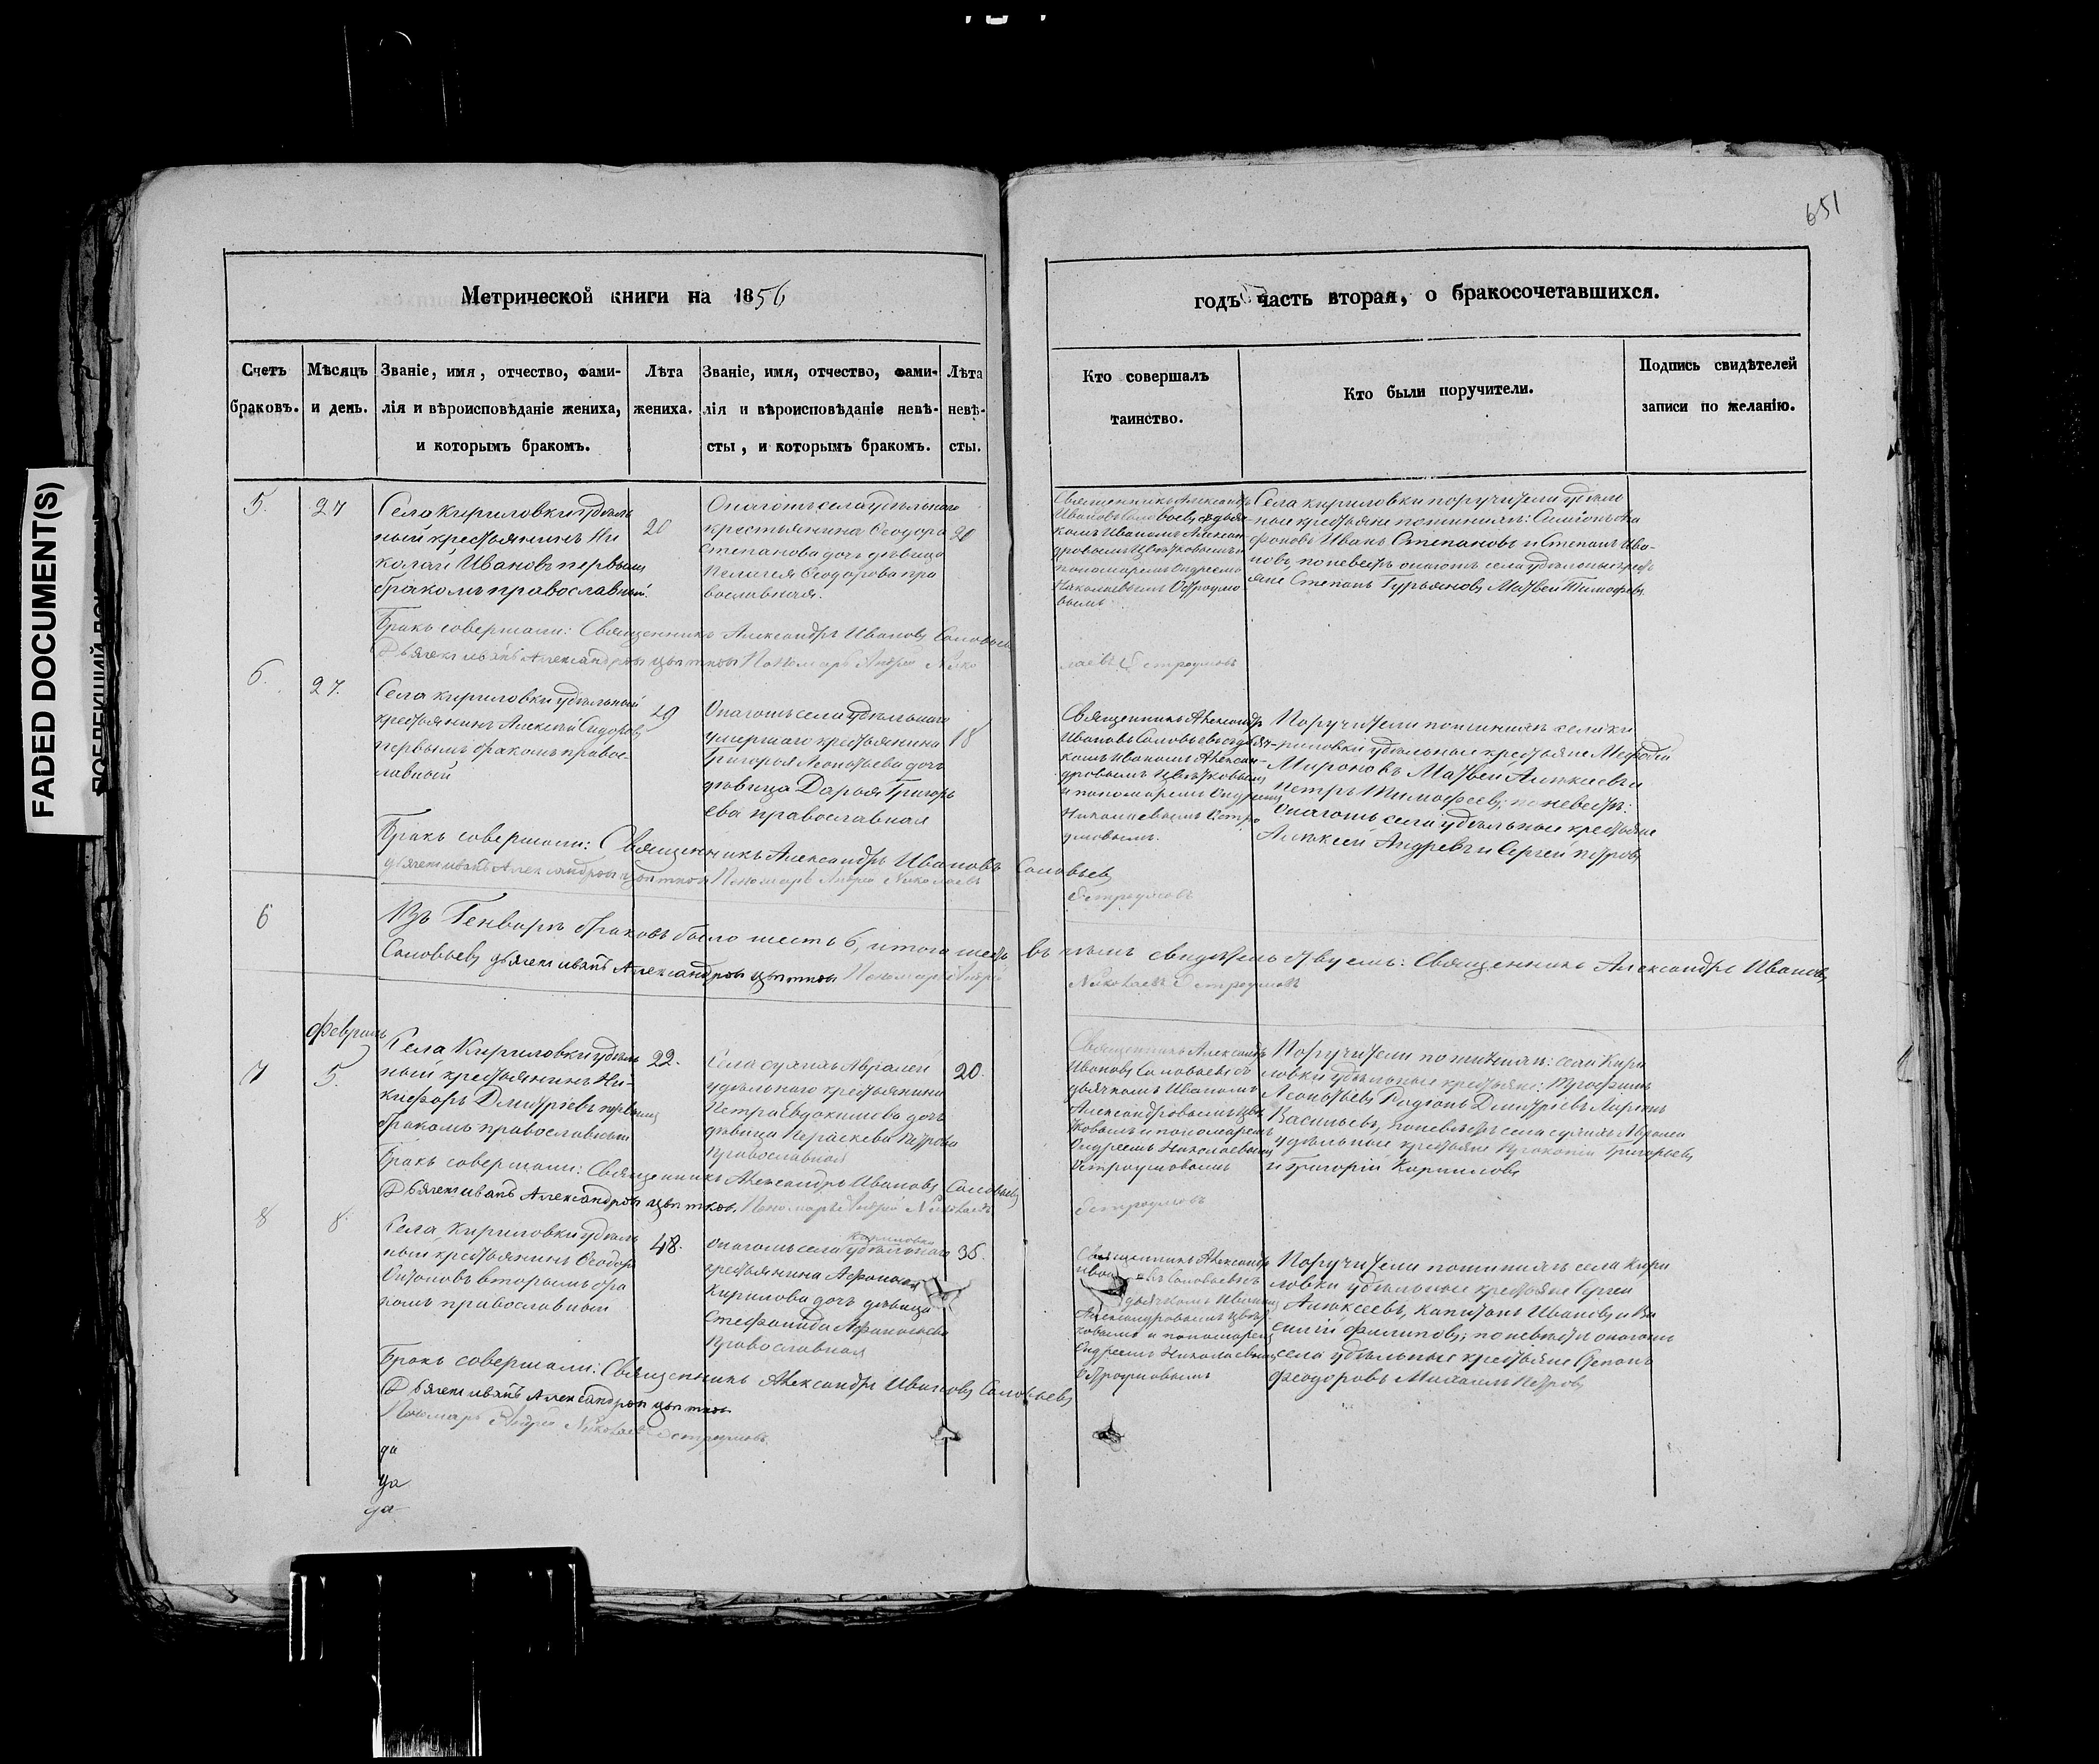 651
Метрической книги на 1856
годъ часть вторая, о бракосочетавшихся.
Счетъ браковъ.
Мѣсяцъ и день.
Званіе, имя, отчество, фами-
лія и вѣроисповѣданіе жениха,
и которымъ бракомъ.
Лѣта жениха.
Званіе, имя, отчество, фами-
лія и вѣроисповѣданіе невѣ-
сты, и которымъ бракомъ.
Лѣта невѣ-
сты.
Кто совершалъ
таинство.
Кто были поручители.
Подпись свидѣтелей
записи по желанію.
5.
27
Села Кириловки удѣль
ный крестьянинъ Ни
колай Ивановъ первымъ
бракомъ православный.
20
Онагожъ села удѣльнаго
крестьянина Ѳеодора
Степанова дочь дѣвица
Пелагея Ѳеодорова пра
вославная.
20
Священникъ Александръ
Ивановъ Соловьевъ съ дьяч-
комъ Иваномъ Алексан
дровымъ Цвѣтковымъ и
пономаремъ Андреемъ
Николаевымъ Остроумо
вымъ
Села Кириловки поручители удѣль
ные крестьяне по женихѣ: Симіонъ Ага
фоновъ Иванъ Степановъ и Степанъ Ива-
новъ, по невестѣ онагожъ села удѣльные кресть
яне Степанъ Гурьяновъ Матвей Тимофеевъ
Бракъ совершали: Священникъ Александръ Ивановъ Соловьевъ
Дьячекъ Иванъ Александровъ Цветковъ Пономарь Андрей Нико
лаевъ Остроумовъ
6.
27.
Села Кириловки удѣльный
крестьянинъ Алексей Сидоровъ
первымъ бракомъ правос-
лавный
19
Онагожъ села удѣльнаго
умершаго крестьянина
Григорья Леонтьева дочь
дѣвица Дарья Григорь
ева православная
18
Священникъ Александръ
Ивановъ Соловьевъ съ дьяч-
комъ Иваномъ Алексан-
дровымъ Цвѣтковымъ
и пономаремъ Андреемъ
Николаевымъ Остро
умовымъ.
Поручители по женихѣ села Ки
риловки удѣльные крестьяне Мефодій
Мироновъ Матвей Алексеевъ и
Петръ Тимофеевъ; по невестѣ:
Онагожъ села удѣльные крестьяне
Алексей Андревъ и Сергей Петровъ
Бракъ совершали: Священникъ Александръ Ивановъ Соловьевъ
дьячекъ Иванъ Александровъ Цветковъ Пономарь Андрей Николаевъ
Остроумовъ
6
Въ Генварѣ браковъ было шесть 6, итого шесть въ чемъ свидѣтельствуемъ: Священникъ Александръ Ивановъ
Соловьевъ дьячекъ Иванъ Александровъ Цветковъ Пономарь Андрей
Николаевъ Остроумовъ
Февраль
7
5.
Села Кириловки удѣль
ный крестьянинъ Ни-
кифоръ Дмитріевъ первымъ
бракомъ православный
22.
Села
удѣльнаго крестьянина
Петра Евдокимова дочь
дѣвица Параскева Петрова
Православная
20.
Священникъ Александръ
Ивановъ Соловьевъ съ
дьячкомъ Иваномъ
Александровымъ Цвѣт
ковымъ и пономаремъ
Андреемъ Николаевымъ
Остроумовымъ
Поручители по женихѣ: села Кири
ловки удѣльные крестьяне: Трофимъ
Леонтьевъ Родіонъ Дмитріевъ Ларіонъ
Васильевъ, по невѣстѣ села
удѣльные крестьяне Прокопій Григорьевъ
и Григорій Кориилов
Бракъ совершали: Священникъ Александръ Ивановъ Соловьевъ
Дьячекъ Иванъ Александровъ Цветковъ. Пономарь Андрей Николаевъ
Остроумовъ
8
8.
Села Кириловки удѣль
ный крестьянинъ Ѳеодоръ
Антоновъ вторымъ бра
комъ православный
48.
Кириловки
Онагожъ села удѣльнаго
крестьянина Афонасея
Кирилова дочь дѣвица
Стефанида Афанасьева
Православная
35.
Священникъ Александръ
Ивановъ Соловьевъ съ
дьячкомъ Иваномъ
Александровымъ Цвѣт
ковымъ и пономаремъ
Андреемъ Николаевымъ
Остроумовымъ
Поручители по женихѣ села Кири
ловки удѣльные крестьяне Сергей
Алексеевъ, Капитонъ Ивановъ и Ва
силій Филиповъ; по невѣстѣ онагожъ
села удѣльные крестьяне Степанъ
Феодоровъ Михаилъ Петровъ
Бракъ совершали: Священникъ Александръ Ивановъ Соловьевъ
Дьячекъ Иванъ Александровъ Цветковъ
Пономарь Андрей Николаевъ Остроумовъ
да
да
да
FADED DOCUMENT(S)